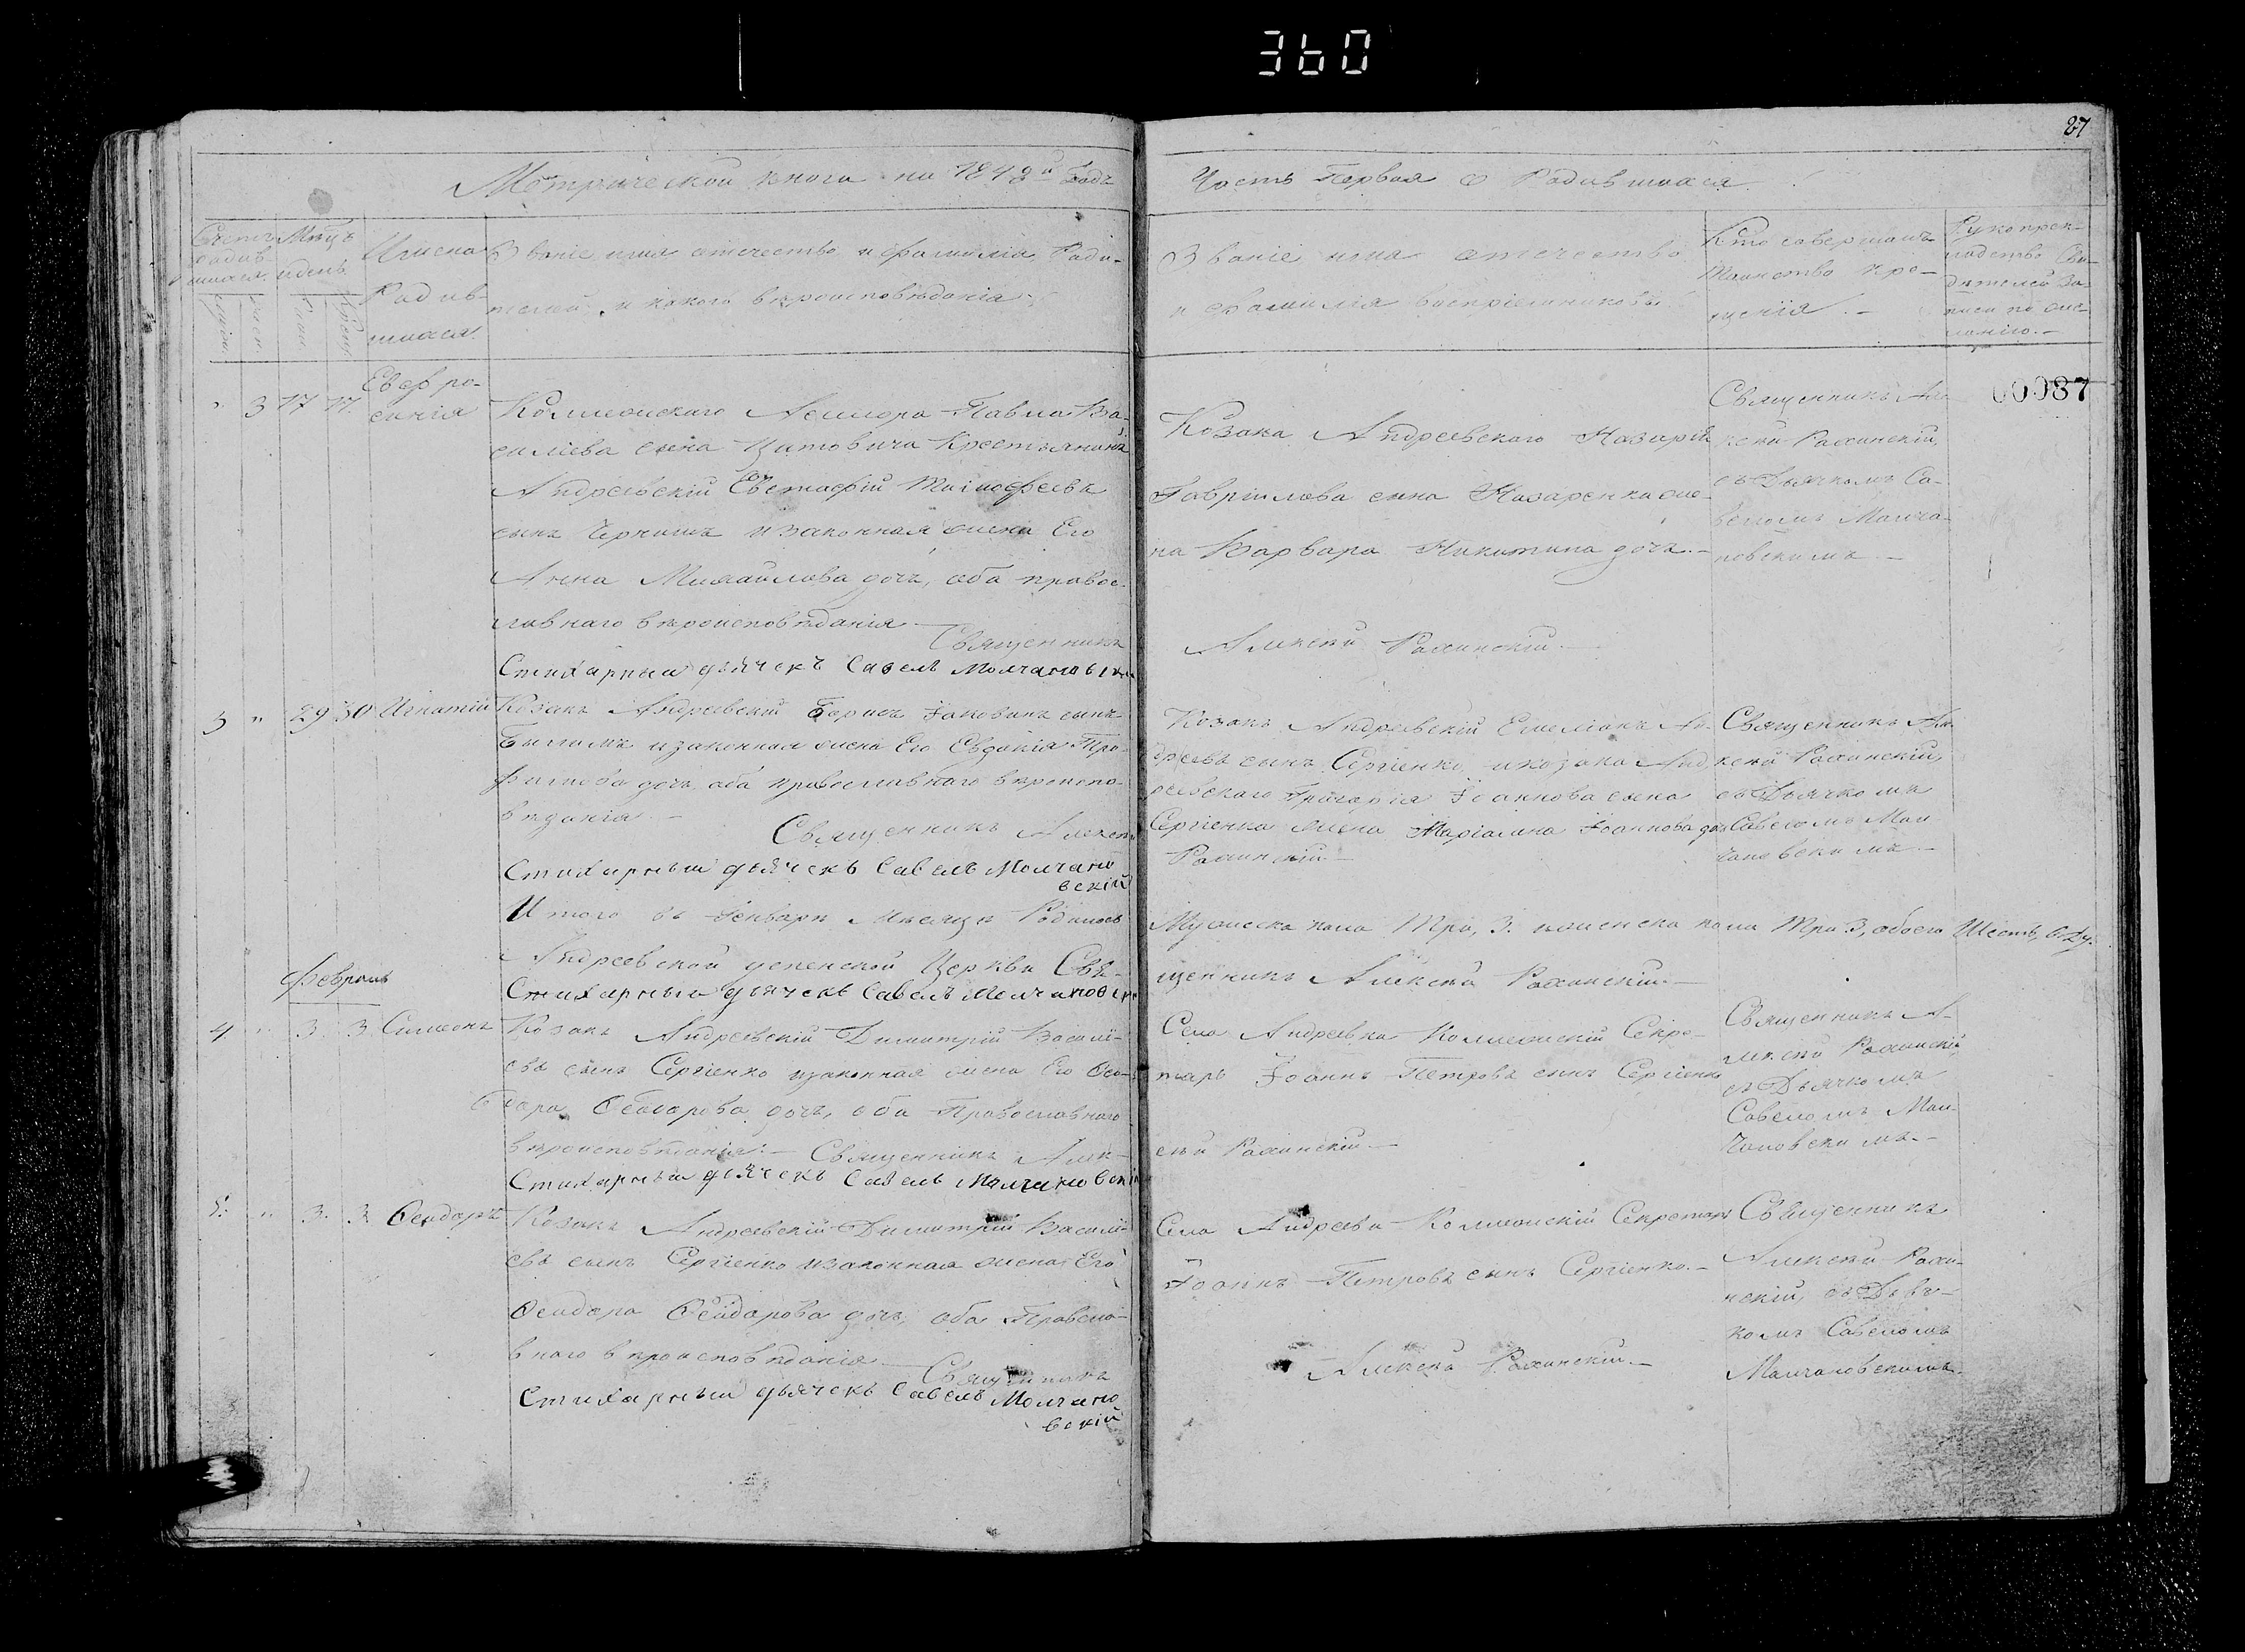 360
27
Метрической книги на 1848й Годъ
Часть Первая О Родившихся.
Счетъ родив-
шихся.
Мѣсяцъ
и день
Имена
Родив-
шихся.
Званіе имя отечество и фамилія Роди-
телей, и какого вѣроисповѣданія.
Званіе имя отечество
и фамилія воспріемниковъ.
Кто совершалъ
таинство кре-
щенія.-
Рукоприк-
ладство Сви-
дѣтелей за-
писи по же-
ланію.-
00087
3 17 17.
Евфро-
синія
Коллежскаго Асесора Павла Ва-
силіева сына Цитовича Крестьянина
Андреевскій Евстафій Тимофеевъ
сынъ Чернишъ и законная жена Его
Анна Михайлова дочь, оба правос-
лавнаго вѣроисповѣданія
Священникъ
Стихарный дьячекъ Савелъ Молчановскій
Козака Андреевского Назарія
Гавріилова сына Назаренка же-
на Варвара Никитина дочь.-
Алексій Рахинскій.-
Священникъ Але-
ксій Рахинскій,
съ Дьячкомъ Са-
веломъ Молча-
новскимъ.-
3 " 29 30 Игнатій
Козакъ Андреевскій Борисъ Іаковинъ сынъ
Билимъ и законная жена Его Евдокія Тро-
фимова дочь, оба православнаго вѣроиспо-
вѣданія.-
Священникъ Алексій
Стихарный дьячекъ Савелъ Молчано
вскій
Козакъ Андреевскій Емеліанъ Ан-
дреевъ сынъ Сергіенко и козака Анд-
реевскаго Григорія Іоаннова сына
Сергіенка жена Маріамна Іоаннова дочь
Рахинскій.-
Священникъ Але-
ксій Рахинскій,
съ Дьячкомъ
Савеломъ Мол-
чановскимъ.-
Итого въ Генварѣ Мѣсяцѣ Родилось
Мужеска пола Три, 3. женска пола Три 3, обоего Шесть, 6. ду.
Андреевской успенской Церкви Свя-
щенникъ Алексій Рахинскій.-
Стихарный дьячекъ Савелъ Молчановскій
Февраль
4. " 3. 3. Симеонъ
Козакъ Андреевскій Димитрій Василі-
евъ сынъ Сергіенко и законная жена Его Ѳео-
дора Ѳеодорова дочь, оба Православнаго
вѣроисповѣданія.- Священникъ Алек-
Стихарный дьячекъ Савелъ Молчановскій
Села Андреевки Коллежскій Секре-
тарь Іоаннъ Петровъ сынъ Сергіенко
сій Рахинскій.-
Священникъ А-
лексій Рахинскій
съ Дьячкомъ
Савеломъ Мол-
чановскимъ.-
5. " 3. 3. Ѳеодоръ
Козакъ Андреевскій Димитрій Василі-
евъ сынъ Сергіенко и законная жена Его
Ѳеодора Ѳеодорова дочь, оба Правосла-
внаго вѣроисповѣданія.
Священникъ
Стихарный дьячекъ Савелъ Молчано
вскій
Села Андреевки Коллежскій Секретарь
Іоаннъ Петровъ сынъ Сергіенко.-
Алексій Рахинскій.-
Священникъ
Алексій Рахи-
нскій, съ Дьяч-
комъ Савеломъ
Молчановскимъ.